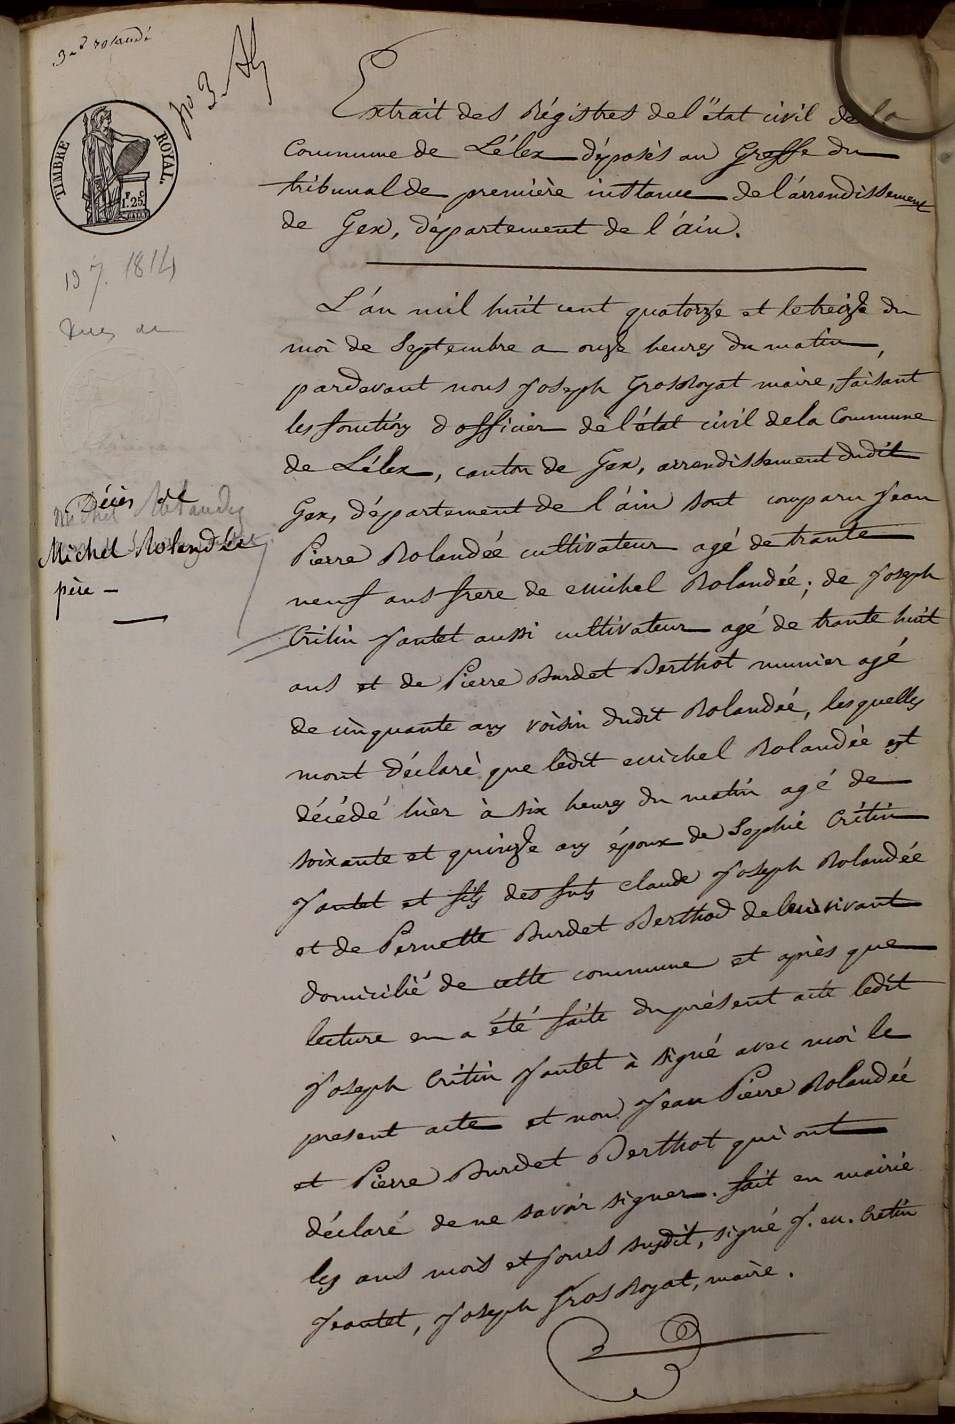 3me rolandé
No 3
TIMBRE ROYAL.
F. C.
1.25.
13 7. 1814
Extrait des Régistres de l'état civil de la
Commune de Lélex déposés au Greffe du
tribunal de première instance de l'arrondissement
de Gex, département de l'áin.
L'án mil huit cent quatorze et le treize du
moi de Septembre a onze heures du matin,
pardevant nous Joseph GrosRoyat maire, faisant
les fonctions d'officier de l'état civil de la Commune
de Lélex, canton de Gex, arrondissement dudit
Gex, département de l'áin sont comparu Jean
Pierre Rolandée cultivateur agé de trante
neuf ans frere de Michel Rolandée; de Joseph
Critin Jantet aussi cultivateur agé de trante huit
ans et de Pierre Burdet Berthot munier agé
de cinquante ans voisin dudit Rolandée, lesquelles
mont déclaré que ledit Michel Rolandée est
décédé hier à six heures du matin agé de
soixante et quinze ans époux de Sophie Critin
Jantet et fils des futs Claude Joseph Rolandée
et de Pernette Burdet Berthod de leur vivant
domicilié de cette commune et après que
lecture en a été faite du présent acte ledit
Joseph Critin Jantet à signé avec moi le
present acte et non Jean Pierre Rolandée
et Pierre Burdet Berthot qui ont
déclaré de ne savoir signer. fait en mairie
les ans mois et jours susdit, signé J. m. Cretin
Jeantet, Joseph Gros Royat, maire.
Décès de
Michel Roland Le
père —